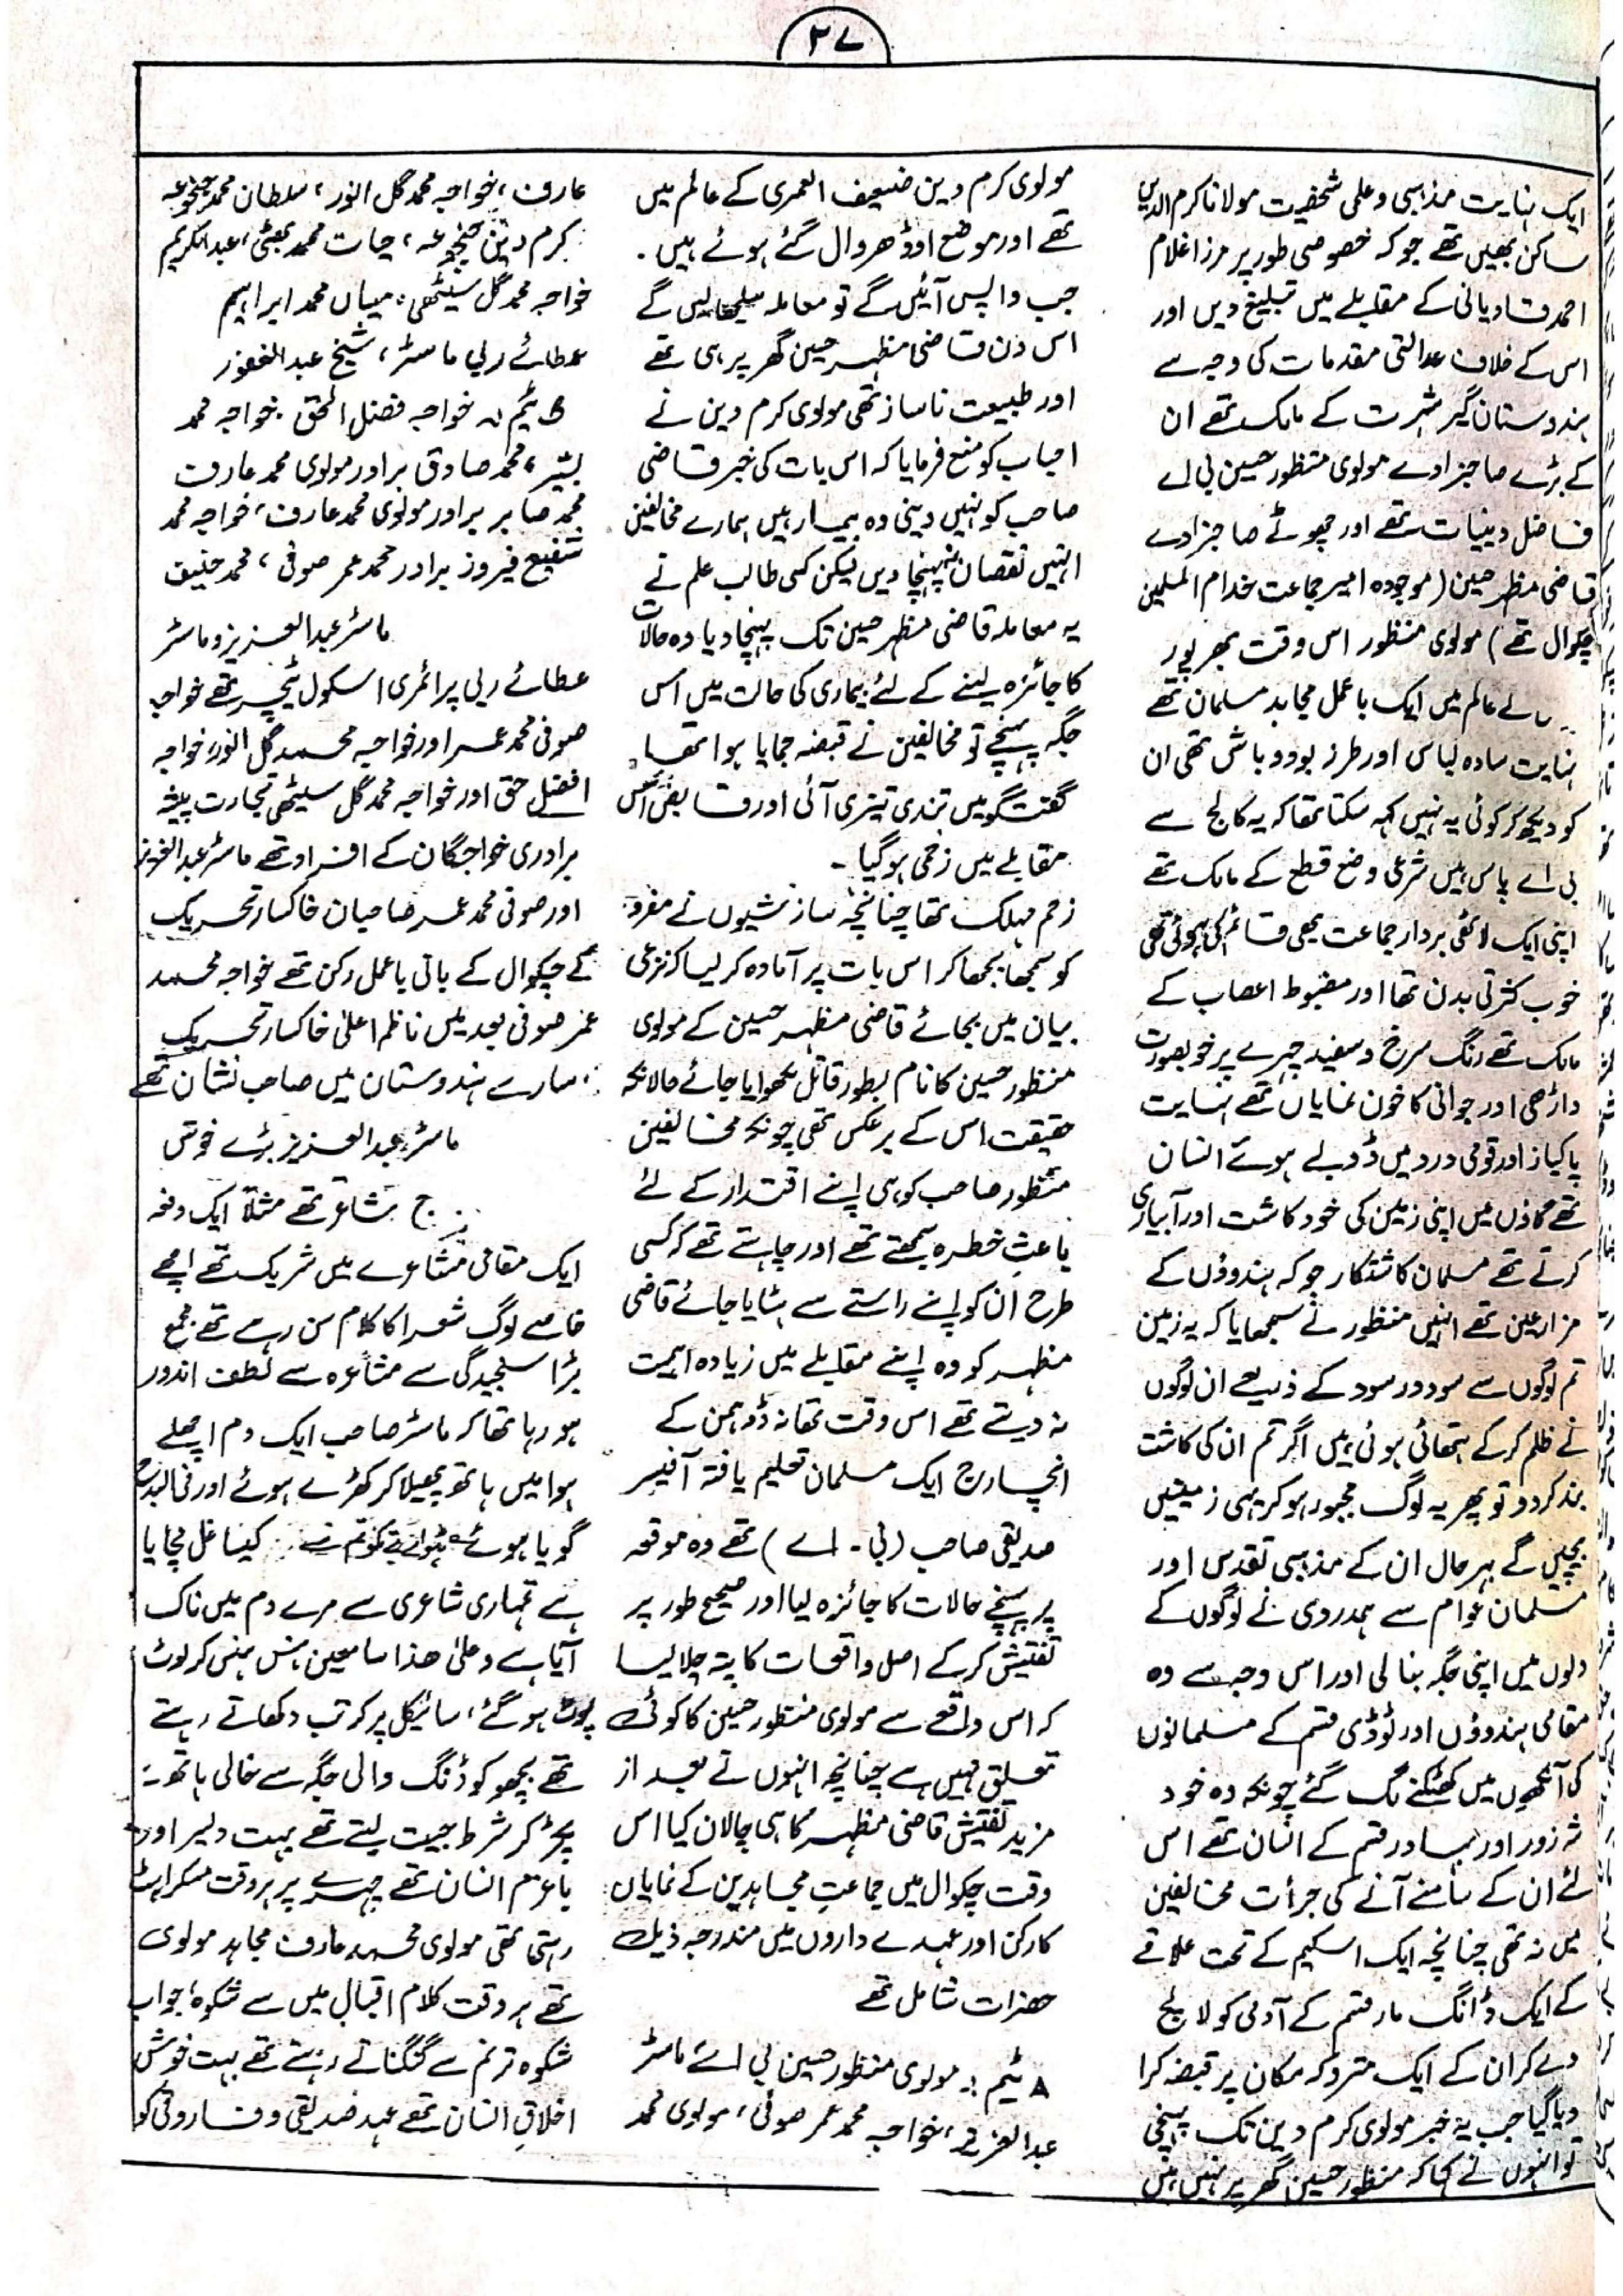 ۲۷
ایک نہایت مذہبی و علمی شخصیت مولانا کرم الدین
ساکن بھیں تھے جو کہ خصوصی طور پر مرزا غلام
احمد قادیانی کے مقابلے میں تبلیغ دیں اور
اس کے خلاف عدالتی مقدمات کی وجہ سے
ہندوستان گیر شہرت کے مالک تھے ان
کے بڑے صاحبزادے مولوی منظور حسین بی اے
فاضل دینیات تھے اور چھوٹے صاحبزادے
قاضی مظہر حسین (موجودہ امیر جماعت خدام المسلمین
چکوال تھے) مولوی منظور اس وقت بھرپور
کے عالم میں ایک باعمل مجاہد مسلمان تھے
نہایت سادہ لباس اور طرز بود و باش تھی ان
کو دیکھ کر کوئی یہ نہیں کہہ سکتا تھا کہ یہ کالج سے
بی اے پاس ہیں شرعی وضع قطع کے مالک تھے
اپنی ایک لاٹھی بردار جماعت بھی قائم کی ہوئی تھی
خوب کثرتی بدن تھا اور مضبوط اعصاب کے
مالک تھے رنگ سرخ و سفید چہرے پر خوبصورت
داڑھی اور جوانی کا خون نمایاں تھے نہایت
پاکباز اور قومی درد میں ڈوبے ہوئے انسان
تھے گاؤں میں اپنی زمین کی خود کاشت اور آبیاری
کرتے تھے مسلمان کاشتکار جو کہ ہندوؤں کے
مزارعین تھے انہیں منظور نے سمجھایا کہ یہ زمین
تم لوگوں سے سود در سود کے ذریعے ان لوگوں
نے ظلم کر کے ہتھائی ہوئی ہیں اگر تم ان کی کاشت
بند کر دو تو پھر یہ لوگ مجبور ہو کر یہی زمینیں
بیچیں گے بہرحال ان کے مذہبی تقدس اور
مسلمان عوام سے ہمدردی نے لوگوں کے
دلوں میں اپنی جگہ بنا لی اور اس وجہ سے وہ
مقامی ہندوؤں اور ٹوڈی قسم کے مسلمانوں
کی آنکھوں میں کھٹکنے لگ گئے چونکہ وہ خود
شہ زور اور بہادر قسم کے انسان تھے اس
لئے ان کے سامنے آنے کی جرأت مخالفین
میں نہ تھی چنانچہ ایک اسکیم کے تحت علاقے
کے ایک ڈانگ مار قسم کے آدمی کو لالچ
دے کر ان کے ایک متروکہ مکان پر قبضہ کرا
دیا گیا جب یہ خبر مولوی کرم دین تک پہنچی
تو انہوں نے کہا کہ منظور حسین گھر پر نہیں ہیں
مولوی کرم دین ضعیف العمری کے عالم میں
تھے اور موضع اوڈھروال گئے ہوئے ہیں۔
جب واپس آئیں گے تو معاملہ سلجھا لیں گے
اس دن قاضی مظہر حسین گھر پر ہی تھے
اور طبیعت ناساز تھی مولوی کرم دین نے
احباب کو منع فرمایا کہ اس بات کی خبر قاضی
صاحب کو نہیں دینی وہ بیمار ہیں ہمارے مخالفین
انہیں نقصان نہ پہنچا دیں لیکن کسی طالب علم نے
یہ معاملہ قاضی مظہر حسین تک پہنچا دیا وہ حالات
کا جائزہ لینے کے لئے بیماری کی حالت میں اس
جگہ پہنچے تو مخالفین نے قبضہ جمایا ہوا تھا۔
گفتگو میں تندی تیزی آئی اور قابض اس
مقابلے میں زخمی ہو گیا۔
زخم مہلک تھا چنانچہ سازشیوں نے مفرو
کو سمجھا بجھا کر اس بات پر آمادہ کر لیا کہ نزعی
بیان میں بجائے قاضی مظہر حسین کے مولوی
منظور حسین کا نام بطور قاتل لکھوایا جائے حالانکہ
حقیقت اس کے برعکس تھی چونکہ مخالفین
منظور صاحب کو ہی اپنے اقتدار کے لئے
باعثِ خطرہ سمجھتے تھے اور چاہتے تھے کہ کسی
طرح ان کو اپنے راستے سے ہٹایا جائے قاضی
مظہر کو وہ اپنے مقابلے میں زیادہ اہمیت
نہ دیتے تھے اس وقت تھانہ ڈوہمن کے
انچارج ایک مسلمان تعلیم یافتہ آفیسر
صدیقی صاحب (بی۔اے) تھے وہ موقعہ
پر پہنچے حالات کا جائزہ لیا اور صحیح طور پر
تفتیش کر کے اصل واقعات کا پتہ چلا لیا
کہ اس واقعے سے مولوی منظور حسین کا کوئی
تعلق نہیں ہے چنانچہ انہوں نے بعد از
مزید تفتیش قاضی مظہر کا ہی چالان کیا اس
وقت چکوال میں جماعتِ مجاہدین کے نمایاں
کارکن اور عہدے داروں میں مندرجہ ذیل
حضرات شامل تھے
A ٹیم :۔ مولوی منظور حسین بی اے ماسٹر
عبدالعزیز، خواجہ محمد عمر صوفی، مولوی محمد
عارف، خواجہ محمد گل النور، سلطان محمد جنجوعہ
کرم دین جنجوعہ، حیات محمد بھٹی، عبدالکریم
خواجہ محمد گل سیٹھی، میاں محمد ابراہیم
عطائے ربی ماسٹر، شیخ عبدالغفور
ٹیم :۔ خواجہ فضل الحق۔ خواجہ محمد
بشیر، محمد صادق برادر مولوی محمد عارف
محمد صابر برادر مولوی محمد عارف، خواجہ محمد
شفیع فیروز برادر محمد عمر صوفی، محمد حنیف
ماسٹر عبدالعزیز و ماسٹر
عطائے ربی پرائمری اسکول ٹیچر تھے خواجہ
صوفی محمد عمر اور خواجہ محمد گل النور، خواجہ
افضل حق اور خواجہ محمد گل سیٹھی تجارت پیشہ
برادری خواجگان کے افراد تھے ماسٹر عبدالعزیز
اور صوفی محمد عمر صاحبان خاکسار تحریک
کے چکوال کے بانی باعمل رکن تھے خواجہ محمد
عمر صوفی بعد میں ناظم اعلیٰ خاکسار تحریک
سارے ہندوستان میں صاحب نشان تھے
ماسٹر عبدالعزیز بڑے خوش
ج شاعر تھے مثلاً ایک دفعہ
ایک مقامی مشاعرے میں شریک تھے اچھے
خاصے لوگ شعرا کا کلام سن رہے تھے مجمع
بڑا سنجیدگی سے مشاعرہ سے لطف اندوز
ہو رہا تھا کہ ماسٹر صاحب ایک دم اچھلے
ہوا میں ہاتھ پھیلا کر کھڑے ہوئے اور فی البدیہہ
گویا ہوئے کیسا غل مچایا
ہے تمہاری شاعری سے مرے دم میں ناک
آیا ہے وعلیٰ ھذا سامعین ہنس ہنس کر لوٹ
پوٹ ہو گئے، سائیکل پر کرتب دکھاتے رہتے
تھے بچھو کو ڈنگ والی جگہ سے خالی ہاتھ
پکڑ کر شرط جیت لیتے تھے بہت دلیر اور
باعزم انسان تھے چہرے پر ہر وقت مسکراہٹ
رہتی تھی مولوی محمد عارف مجاہد مولوی
تھے ہر وقت کلام اقبال میں سے شکوہ، جواب
شکوہ ترنم سے گنگناتے رہتے تھے بہت خوش
اخلاق انسان تھے عہد صدیقی و فاروقی کو